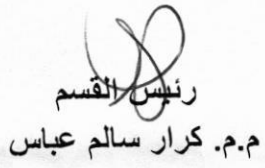 رئيس القسم
م.م. كرار سالم عباس